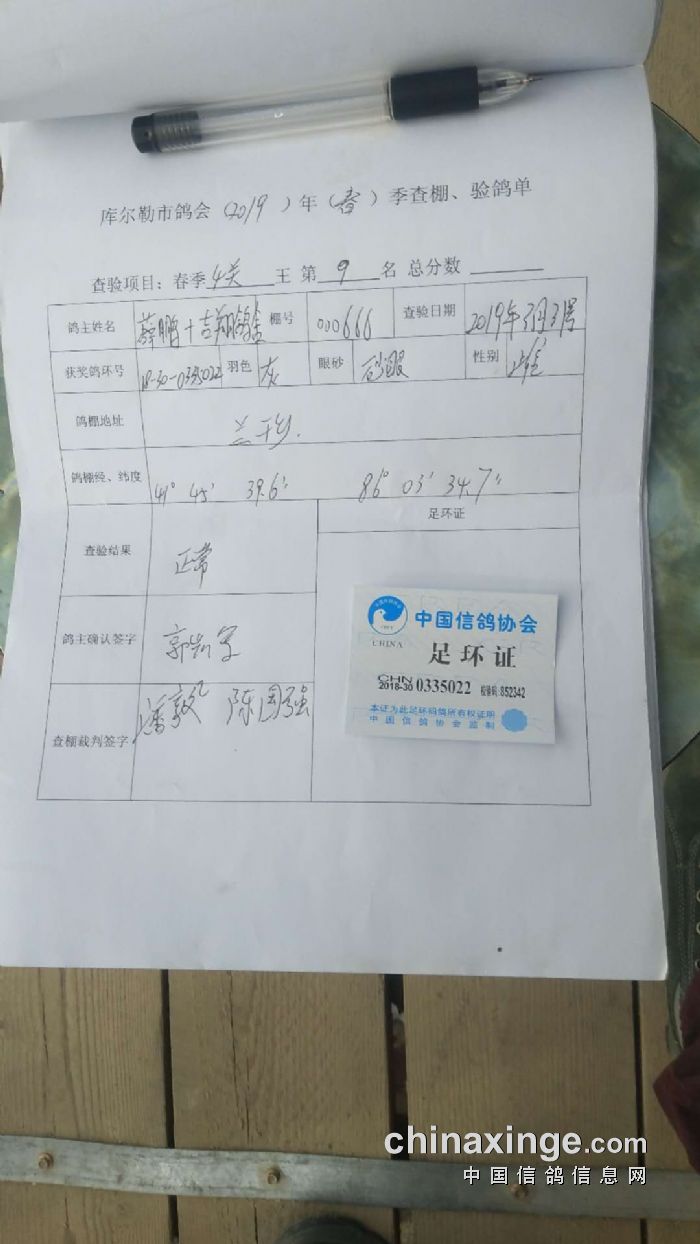 库尔勒市鸽会（2019）年（春）季查棚、验鸽单
查验项目：春季 4关 王 第 9 名 总分数
鸽主姓名 薛鹏+吉翔鸽舍 棚号 000666 查验日期 2019年3月31号
获奖鸽环号 18-30-0335022 羽色 灰 眼砂 砂 性别 雌
鸽棚地址 兰干乡.
鸽棚经、纬度 41° 45' 39.6" 86° 03' 34.7"
查验结果 正常 足环证
鸽主确认签字
查棚裁判签字 潘毅 陈国强
中国信鸽协会
CHINA
足环证
CHN 2018-30 0335022 校验码:852342
本证为此足环码鸽所有权证明
中国信鸽协会监制
chinaxinge.com
中国信鸽信息网